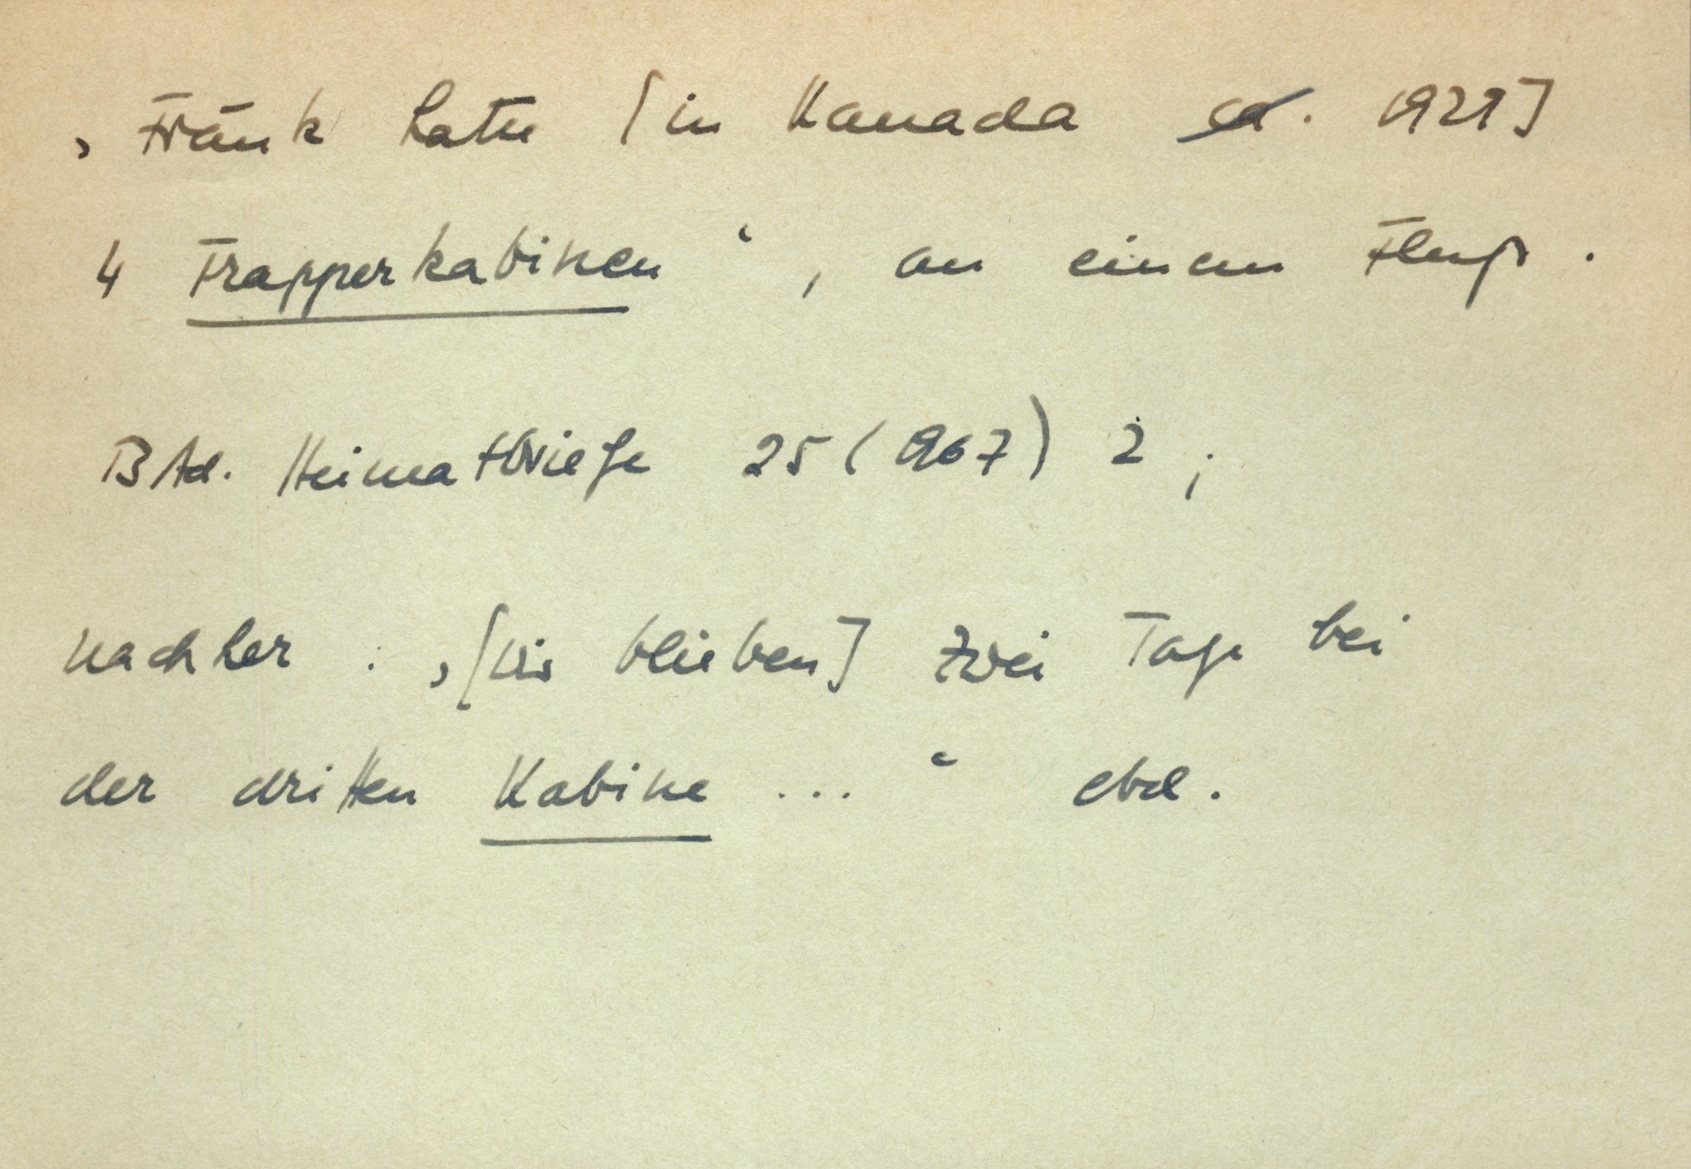 ‚Fränk hatte [in Kanada ca. 1929]
4 Trapperkabinen‘, an einem Fluß.
BAd. Heimatbriefe 25 (1967) 2;
nachher: ‚[wir blieben] zwei Tage bei
der dritten Kabine ...‘ ebd.